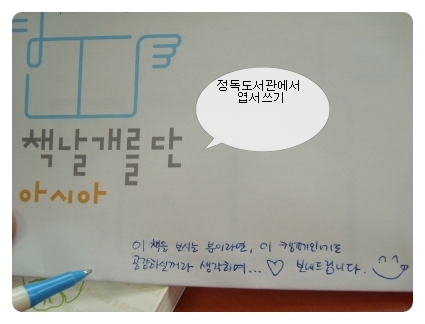 정독도서관에서
엽서쓰기
책날개를단
아시아
이 책을 보시는 분이라면, 이 캠페인에도
공감하실꺼라 생각하여... ♡ 보내드립니다.